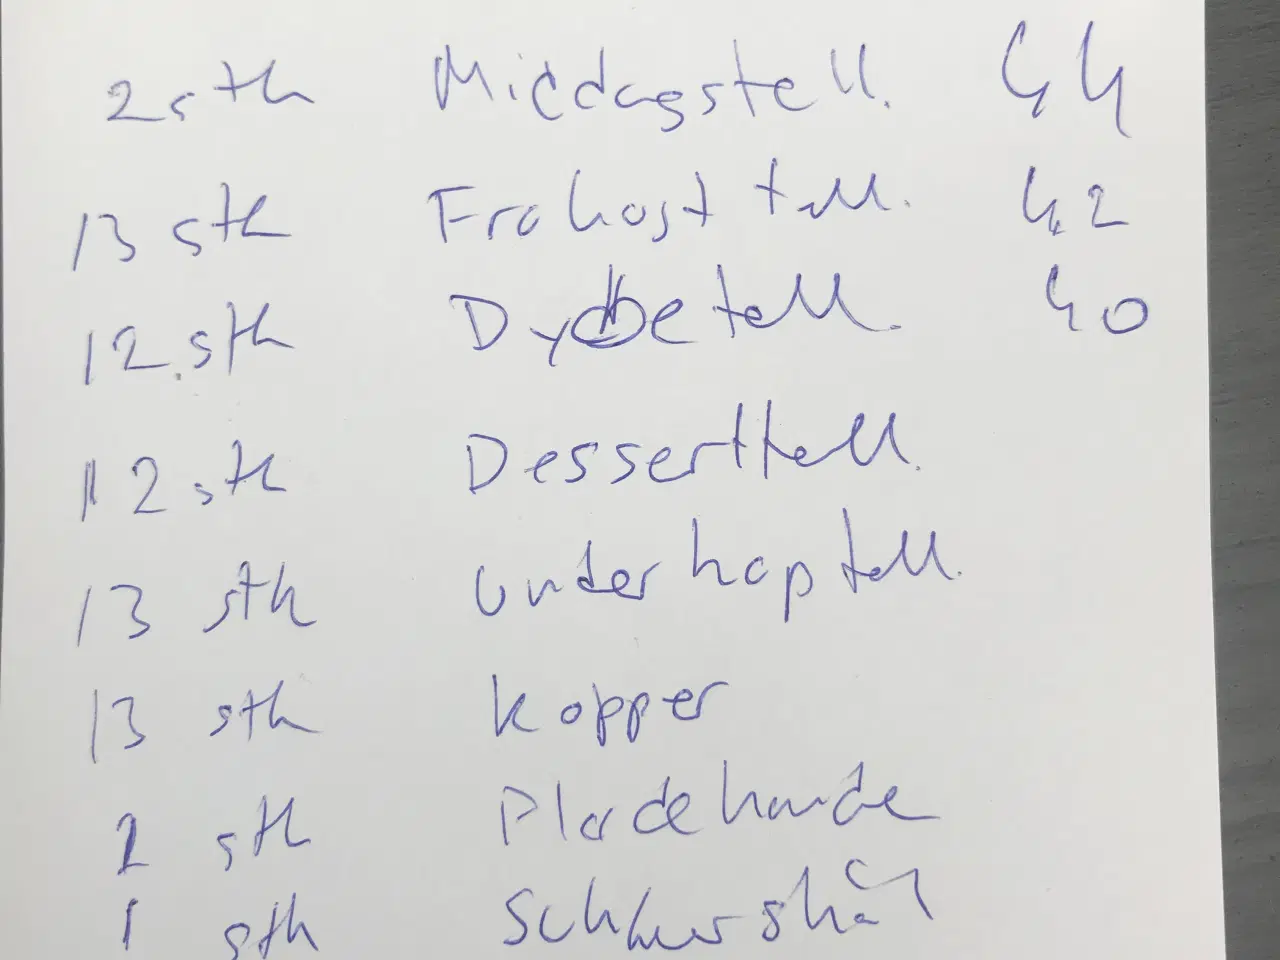 2 stk Middagstell. 44
13 stk Frokost tell. 42
12. stk Dybbe tell. 40
12 stk Desserttell.
13 stk Underkop tell.
13 stk Kopper
2 stk Pladekande
1 stk